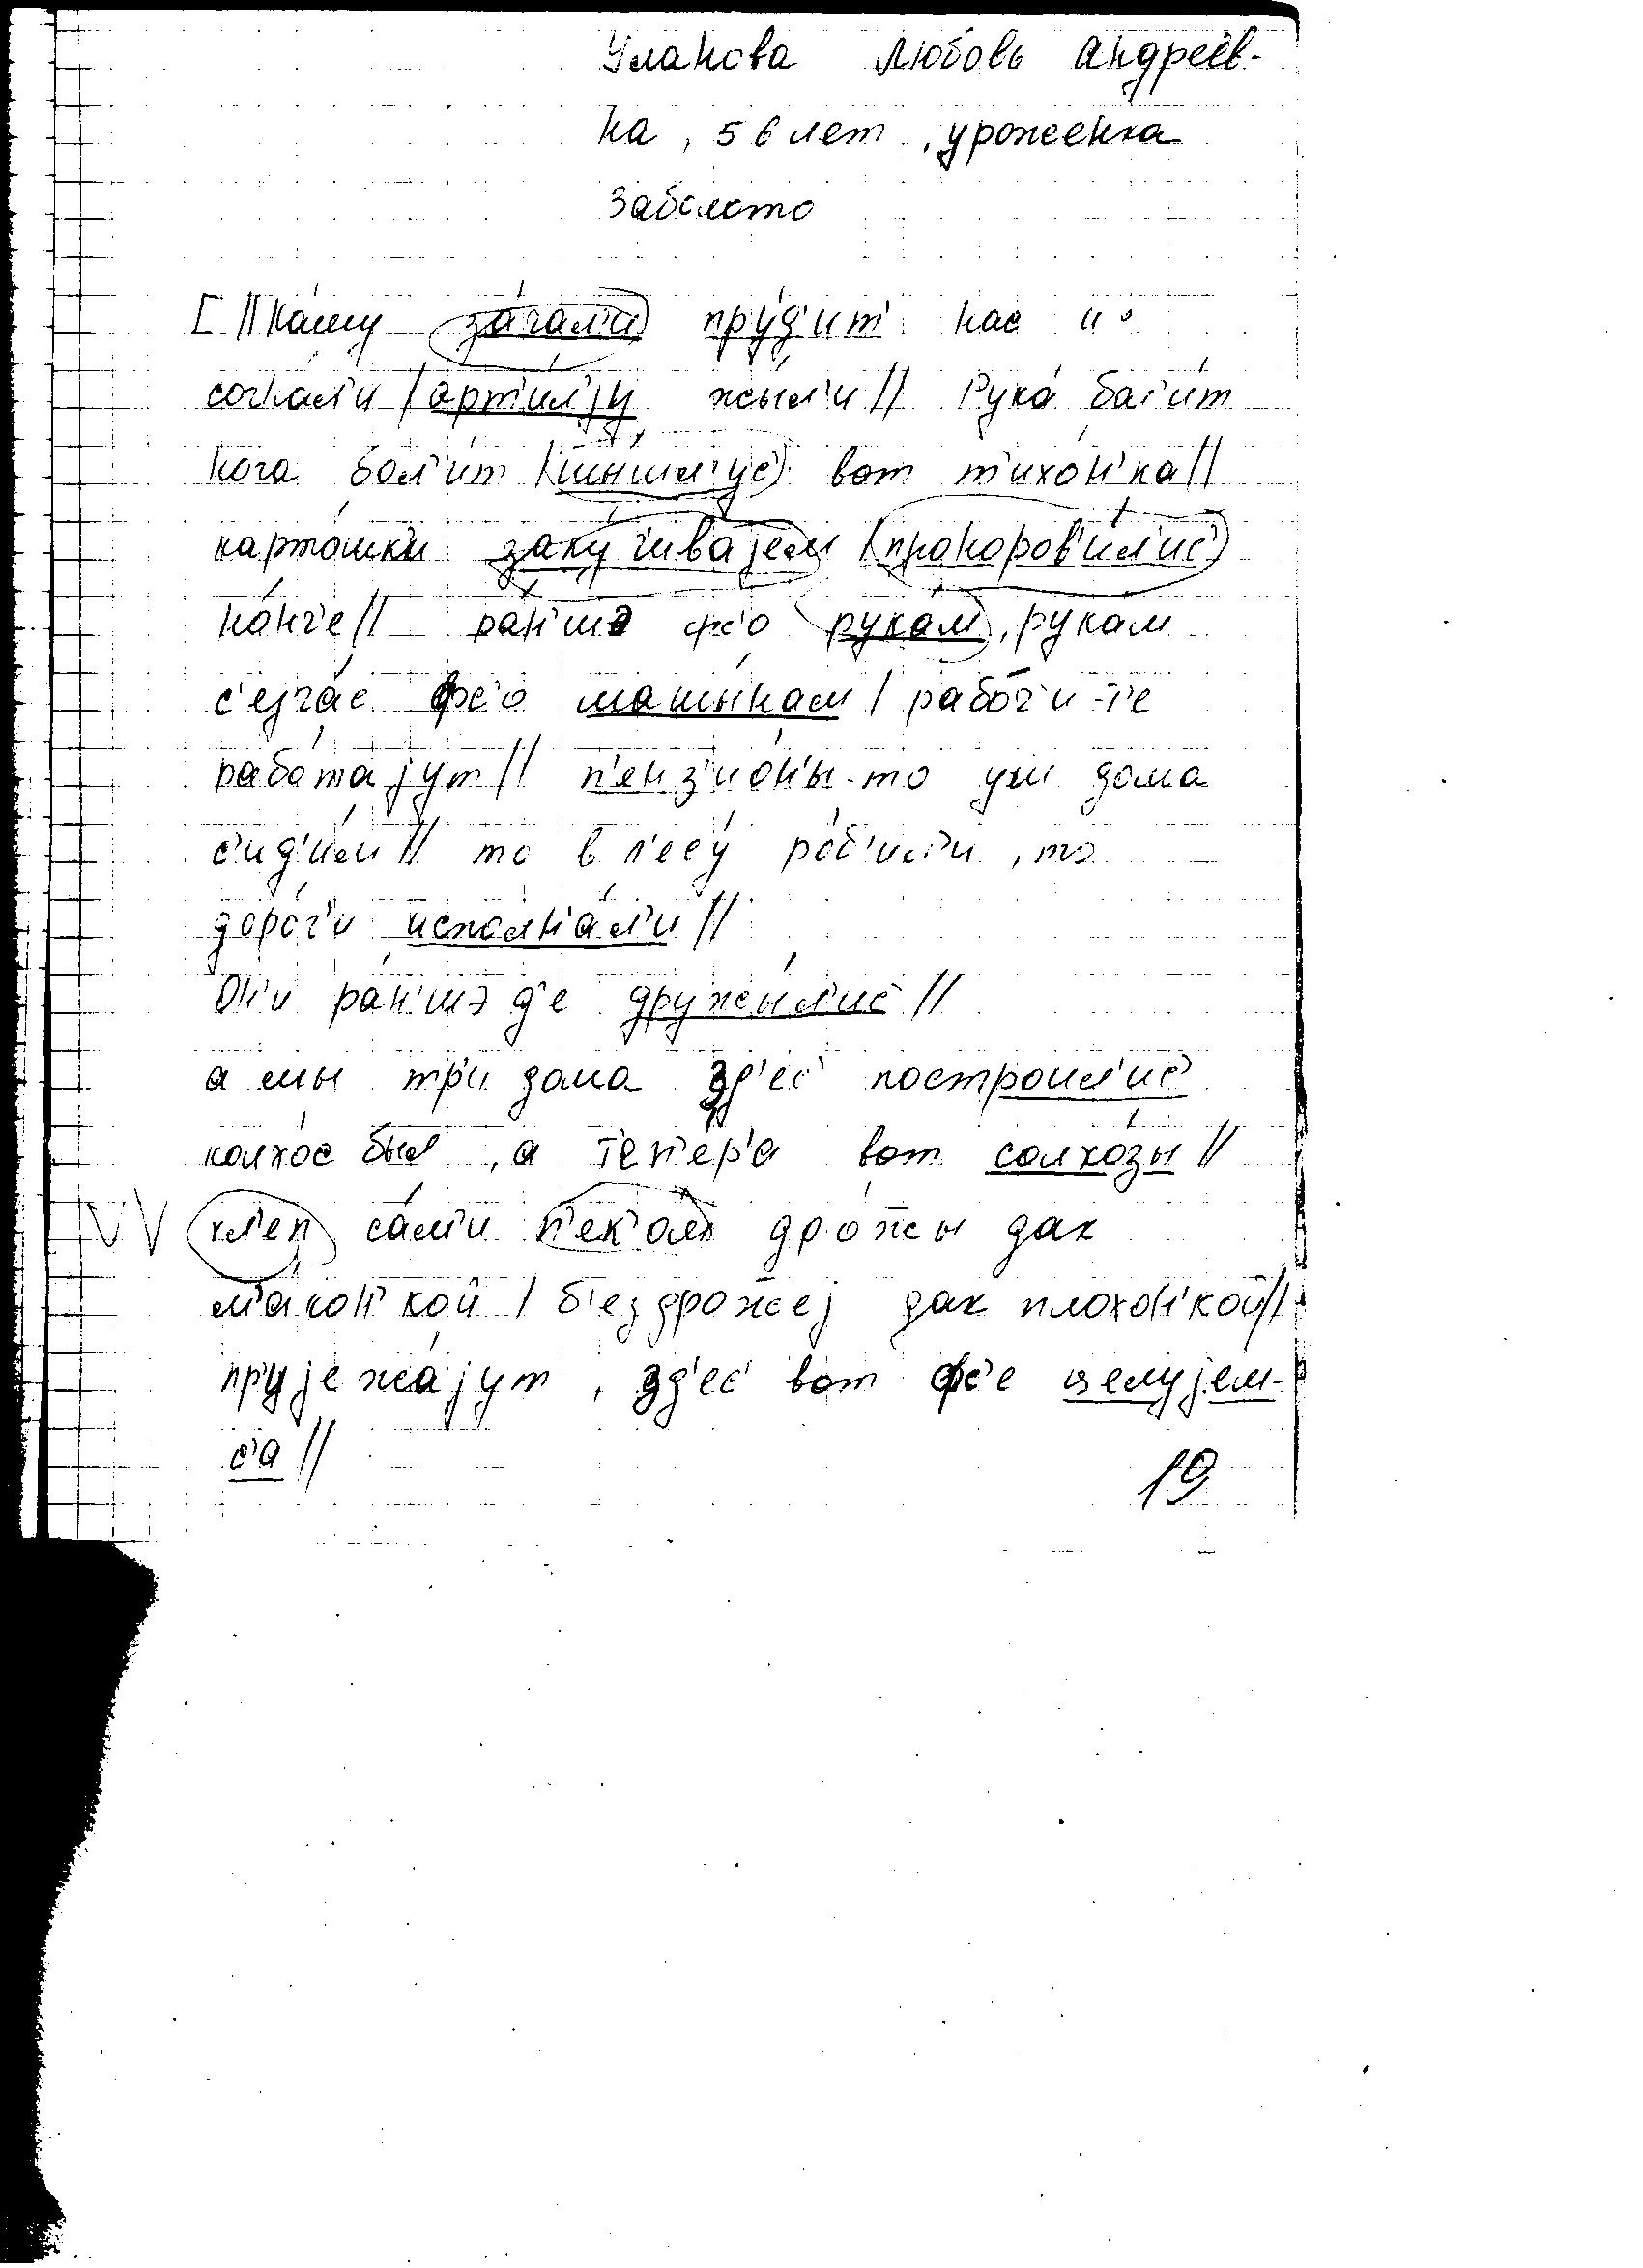 Уланова Любовь Андреев-
на, 56 лет, уроженка
Заболото
[ // на́шу за́чал'и пру́д'ит' нас и
согна́л'и / арт'и́л'jу жы́л'и // Рука́ бат'и́т
нога бол'и́т вот т'ихо́н'ка //
карто́шк'и заку́ч'иваjем / прокоров'и́л'ис'
но́нч'е // ра́н'шэ фс'о рука́м, рукам
с'еjча́с фс'о машы́нам / рабо́ч'и-т'е
рабо́таjут // п'енз'ио́н'ы-то уш дома
с'ид'и́м // то в л'есу́ ро́б'ил'и, то
доро́г'и исполн'а́л'и //
Он'и ра́н'шэ д'е дружы́л'ис' //
а мы тр'и дома зд'ес' построил'ис'
колхо́с был, а т'еп'ер'а вот солхо́зы //
хл'еп са́м'и п'ек'о́м дро́жы дак
м'а́кон'кой / б'ездрожеj дак плохон'кой //
пруjежа́jут, зд'ес' вот фс'е целуjем-
с'а //
19